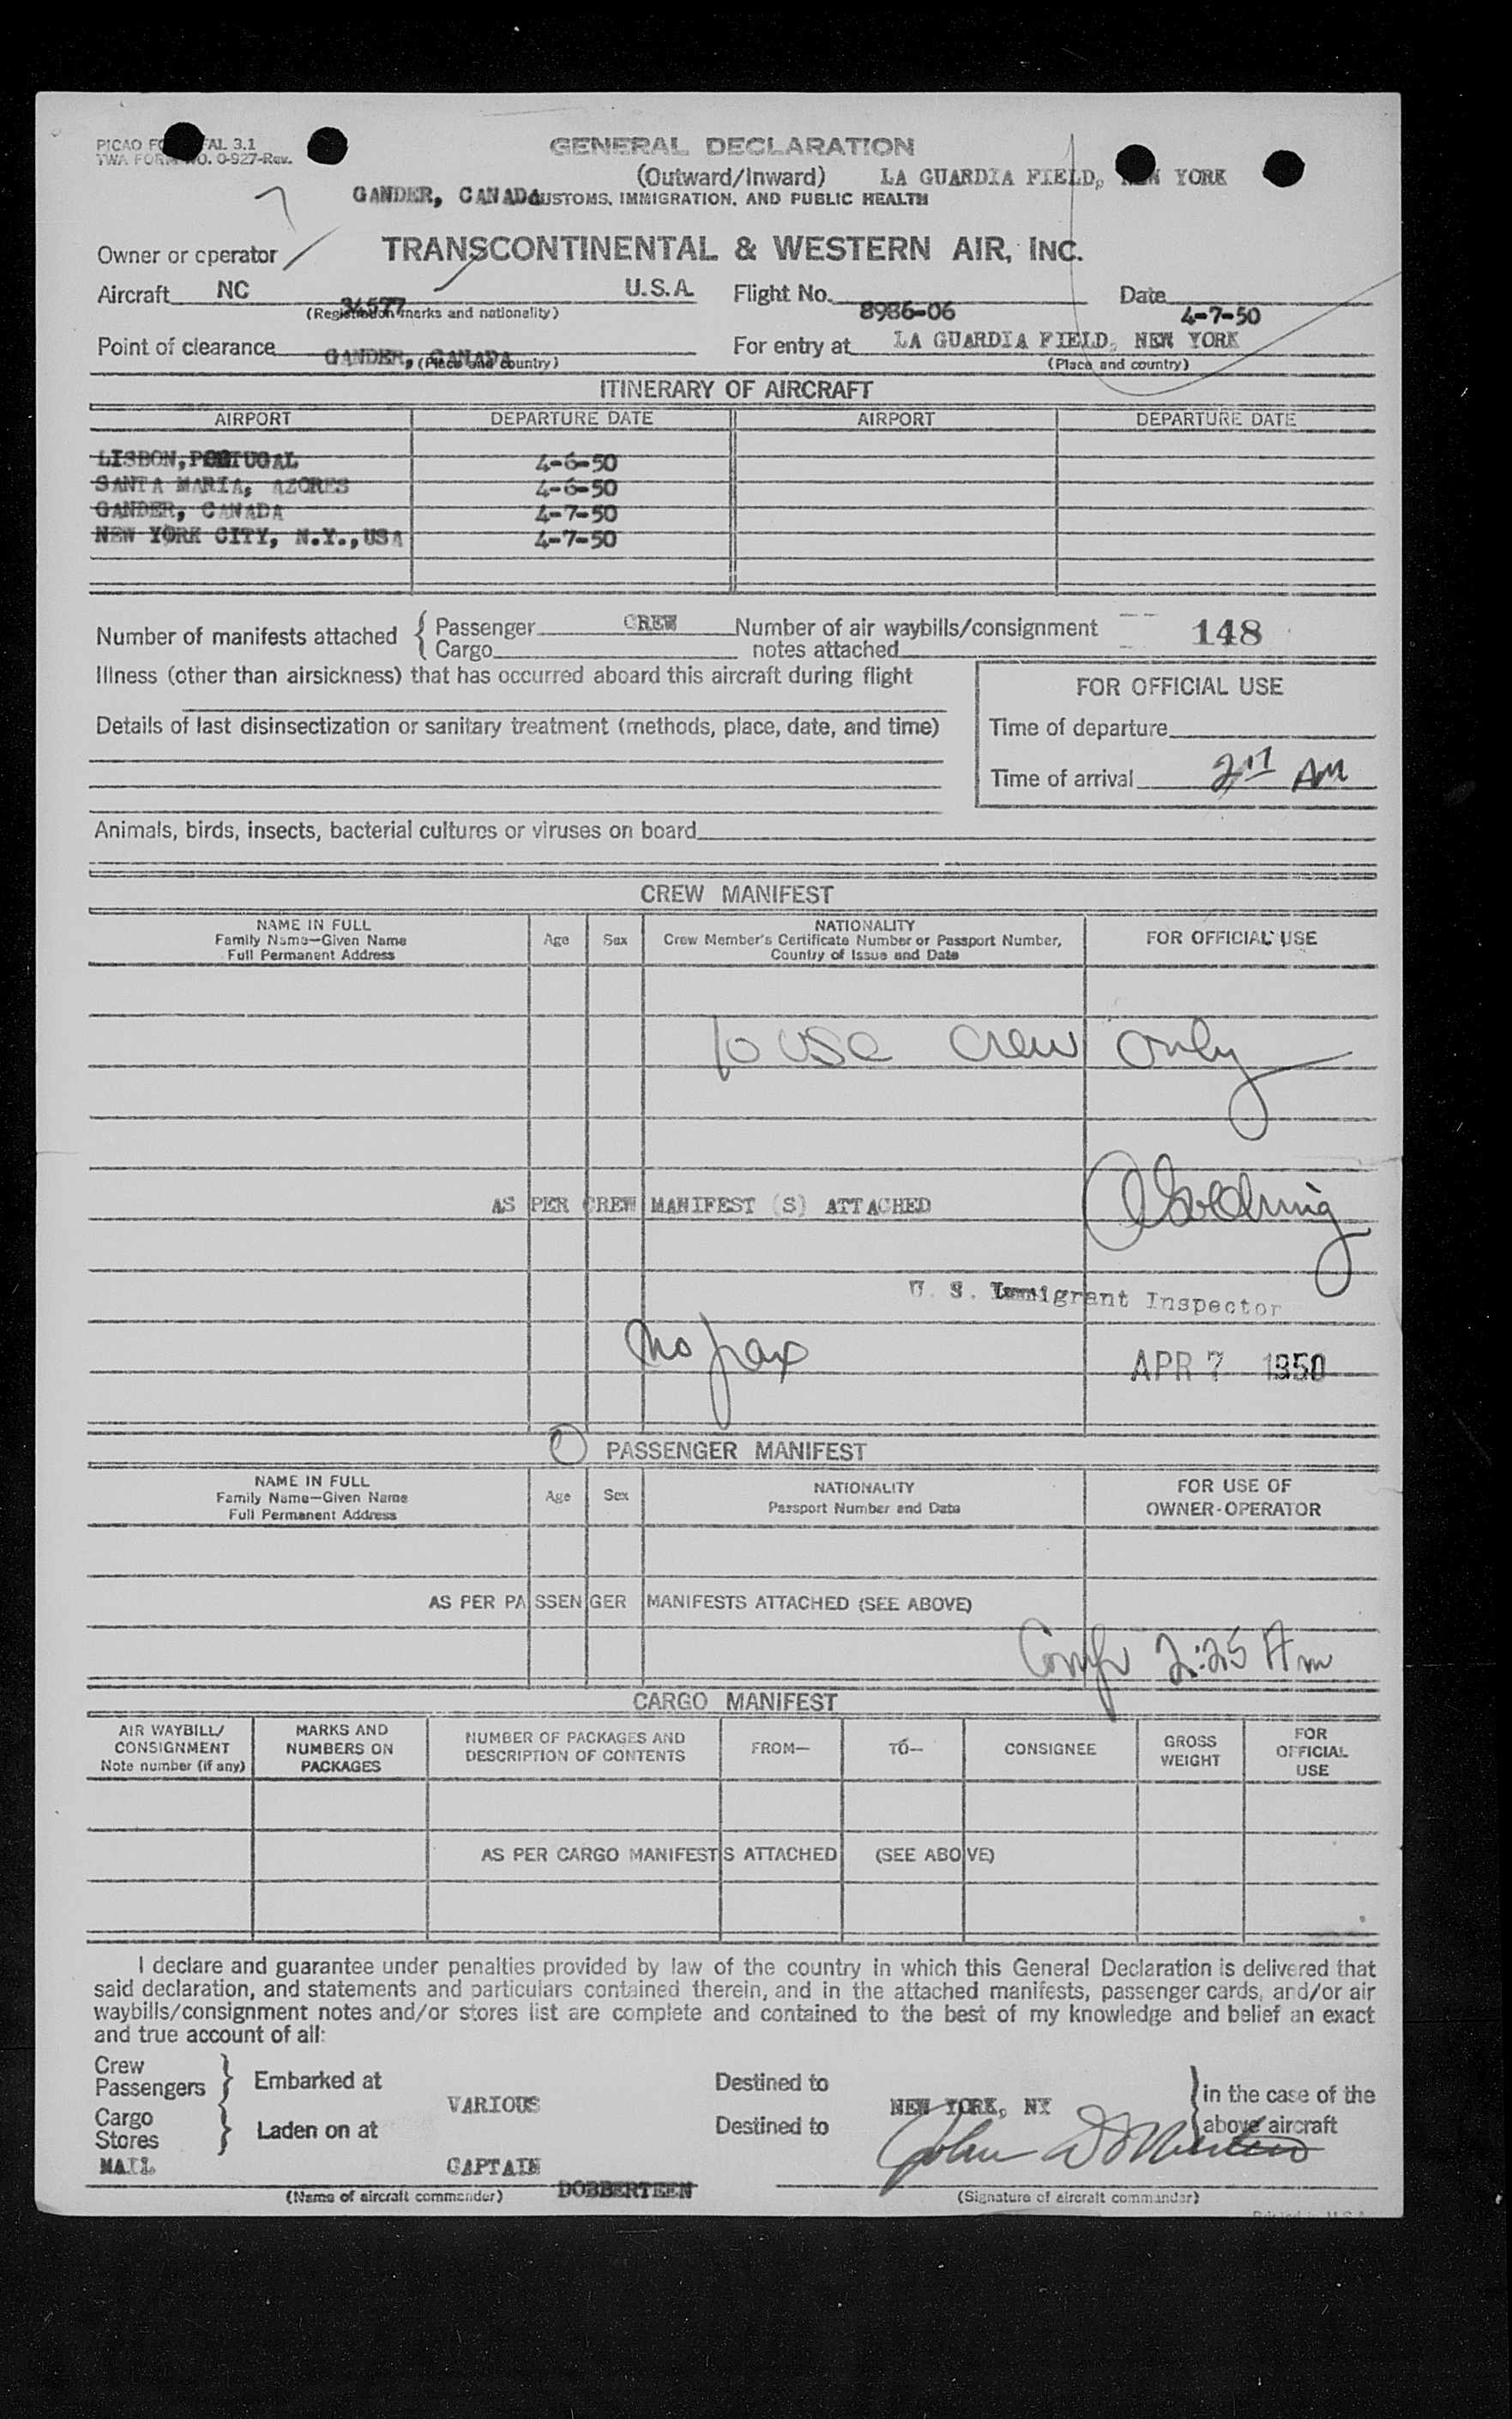 PICAO FO AL 3.1
TWA FORM NO. O-927-Rev.
GENERAL DECLARATION
(Outward/Inward) LA GUARDIA FIELD, NEW YORK
GANDER, CANADA CUSTOMS, IMMIGRATION, AND PUBLIC HEALTH
Owner or operator TRANSCONTINENTAL & WESTERN AIR, INC.
Aircraft NC 34577 U.S.A. Flight No. 8986-06 Date 4-7-50
(Registration marks and nationality)
Point of clearance GANDER, CANADA For entry at LA GUARDIA FIELD, NEW YORK
(Place and country) (Place and country)
ITINERARY OF AIRCRAFT
AIRPORT DEPARTURE DATE AIRPORT DEPARTURE DATE
LISBON, PORTUGAL 4-6-50
SANTA MARIA, AZORES 4-6-50
GANDER, CANADA 4-7-50
NEW YORK CITY, N.Y., USA 4-7-50
Number of manifests attached { Passenger CREW Number of air waybills/consignment 148
Cargo notes attached
Illness (other than airsickness) that has occurred aboard this aircraft during flight
FOR OFFICIAL USE
Details of last disinsectization or sanitary treatment (methods, place, date, and time)
Time of departure
Time of arrival AM
Animals, birds, insects, bacterial cultures or viruses on board
CREW MANIFEST
NAME IN FULL Age Sex NATIONALITY FOR OFFICIAL USE
Family Name—Given Name Crew Member's Certificate Number or Passport Number,
Full Permanent Address Country of Issue and Date
10 USC Crew only
AS PER CREW MANIFEST (S) ATTACHED
U. S. Immigrant Inspector
No pax
APR 7 1950
0 PASSENGER MANIFEST
NAME IN FULL Age Sex NATIONALITY FOR USE OF
Family Name—Given Name Passport Number and Date OWNER-OPERATOR
Full Permanent Address
AS PER PASSENGER MANIFESTS ATTACHED (SEE ABOVE)
2:25 Am
CARGO MANIFEST
AIR WAYBILL/ MARKS AND NUMBER OF PACKAGES AND FROM— TO— CONSIGNEE GROSS FOR
CONSIGNMENT NUMBERS ON DESCRIPTION OF CONTENTS WEIGHT OFFICIAL
Note number (if any) PACKAGES USE
AS PER CARGO MANIFESTS ATTACHED (SEE ABOVE)
I declare and guarantee under penalties provided by law of the country in which this General Declaration is delivered that
said declaration, and statements and particulars contained therein, and in the attached manifests, passenger cards, and/or air
waybills/consignment notes and/or stores list are complete and contained to the best of my knowledge and belief an exact
and true account of all:
Crew
Passengers } Embarked at VARIOUS Destined to NEW YORK, NY } in the case of the
Cargo
Stores } Laden on at Destined to above aircraft
MAIL CAPTAIN DOBBERTEEN John
(Name of aircraft commander) (Signature of aircraft commander)